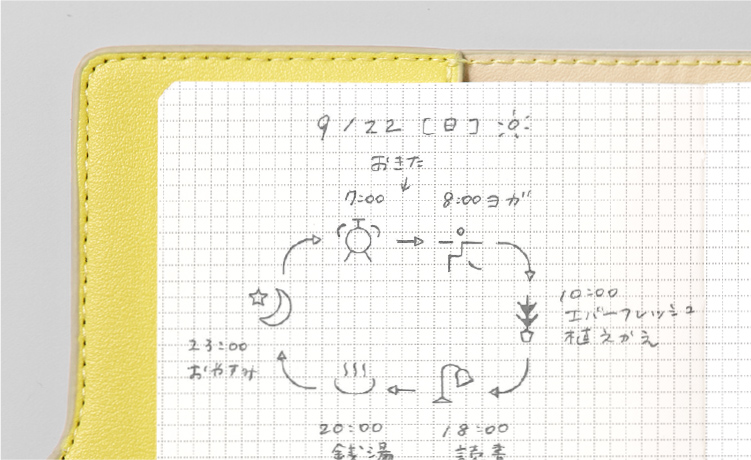 9/22 [日]
おきた
7:00
8:00 ヨガ
10:00
エバーフレッシュ
植えかえ
23:00
おやすみ
20:00
銭湯
18:00
読書